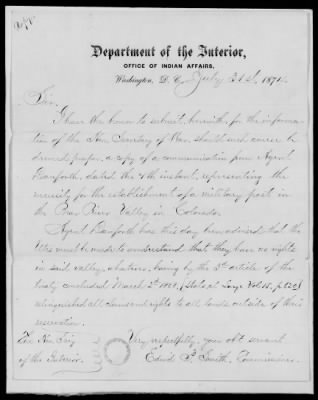 Department of the Interior,
OFFICE OF INDIAN AFFAIRS,
Washington, D. C., July 31st, 1874.
Sir:
I have the honor to submit, herewith, for the informa-
tion of the Hon. Secretary of War, should such course be
deemed proper, a copy of a communication from Agent
Danforth, dated the 4th instant, representing the
necessity for the establishment of a military post in
the Bear River Valley in Colorado.
Agent Danforth has this day been advised that the
Utes must be made to understand that they have no rights
in said valley whatever, having by the 3d article of the
treaty concluded March 2d 1868, (Stats at Large Vol 15, p
relinquished all claims and rights to all lands outside of their
reservation.
Very respectfully, your obt servant
The Hon Secy
of the Interior.
Edwd P. Smith, Commissioner.